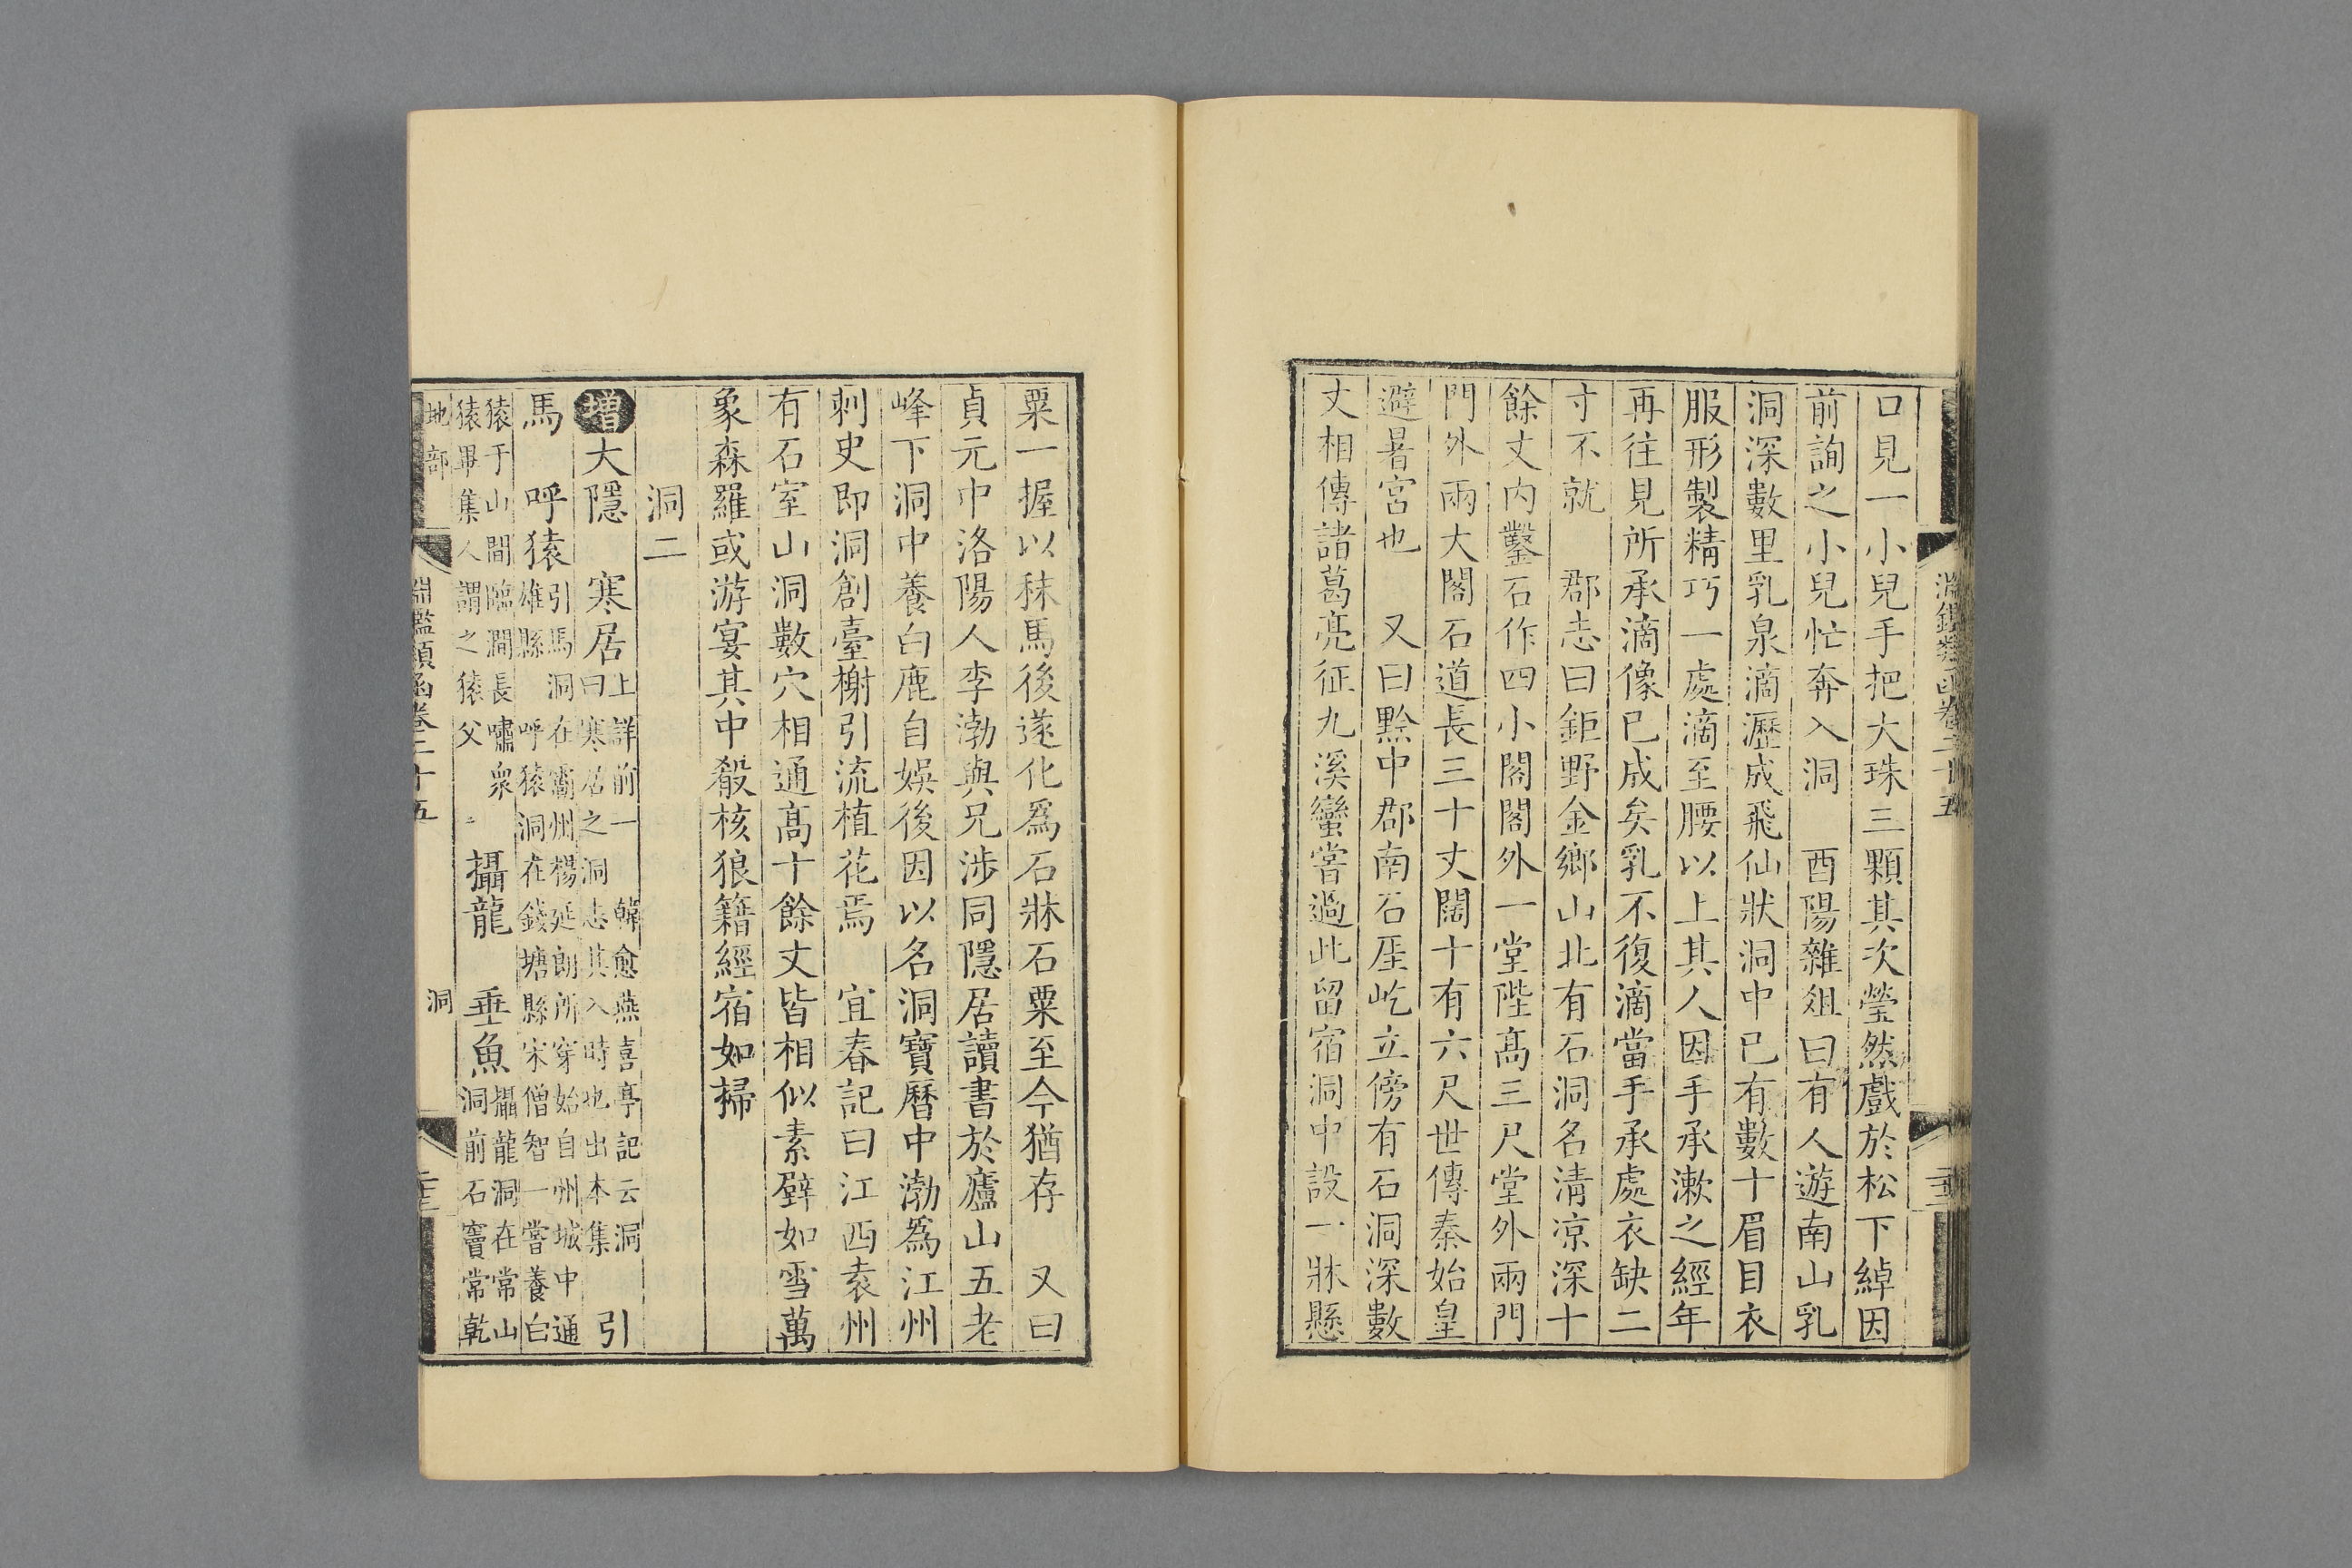 口見一小兒手把大珠三顆其次瑩然戲於松下綽因
前詢之小兒忙奔入洞　酉陽雜爼曰有人遊南山乳
洞深數里乳泉滴瀝成飛仙狀洞中已有數十眉目衣
服形製精巧一處滴至腰以上其人因手承漱之經年
再往見所承滴像已成矣乳不復滴當手承處衣缺二
寸不就　郡志曰鉅野金鄉山北有石洞名清凉深十
餘丈内鑿石作四小閣閣外一堂陛髙三尺堂外兩門
門外兩大閣石道長三十丈闊十有六尺世傳秦始皇
避暑宮也　又曰黔中郡南石厓屹立傍有石洞深數
丈相傳諸葛亮征九溪蠻嘗過此留宿洞中設一牀懸
粟一握以秣馬後遂化爲石牀石粟至今猶存　又曰
貞元中洛陽人李渤與兄涉同隱居讀書於廬山五老
峰下洞中養白鹿自娛後因以名洞寶曆中渤爲江州
刺史即洞創臺榭引流植花焉　宜春記曰江西袁州
有石室山洞數穴相通髙十餘丈皆相似素壁如雪萬
象森羅或游宴其中殽核狼籍經宿如掃
洞二
增大隱　寒居上詳前一　韓愈燕喜亭記云洞曰寒居之洞志其入時也出本集　引
馬　呼猿引馬洞在霸州楊延朗所穿始自州城中通雄縣　呼猿洞在錢塘縣宋僧智一嘗養白
猿于山間臨澗長嘯衆猿畢集人謂之猿父　攝龍　垂魚攝龍洞在常山洞前石竇常乾
地部　淵鑑類函卷二十五　洞